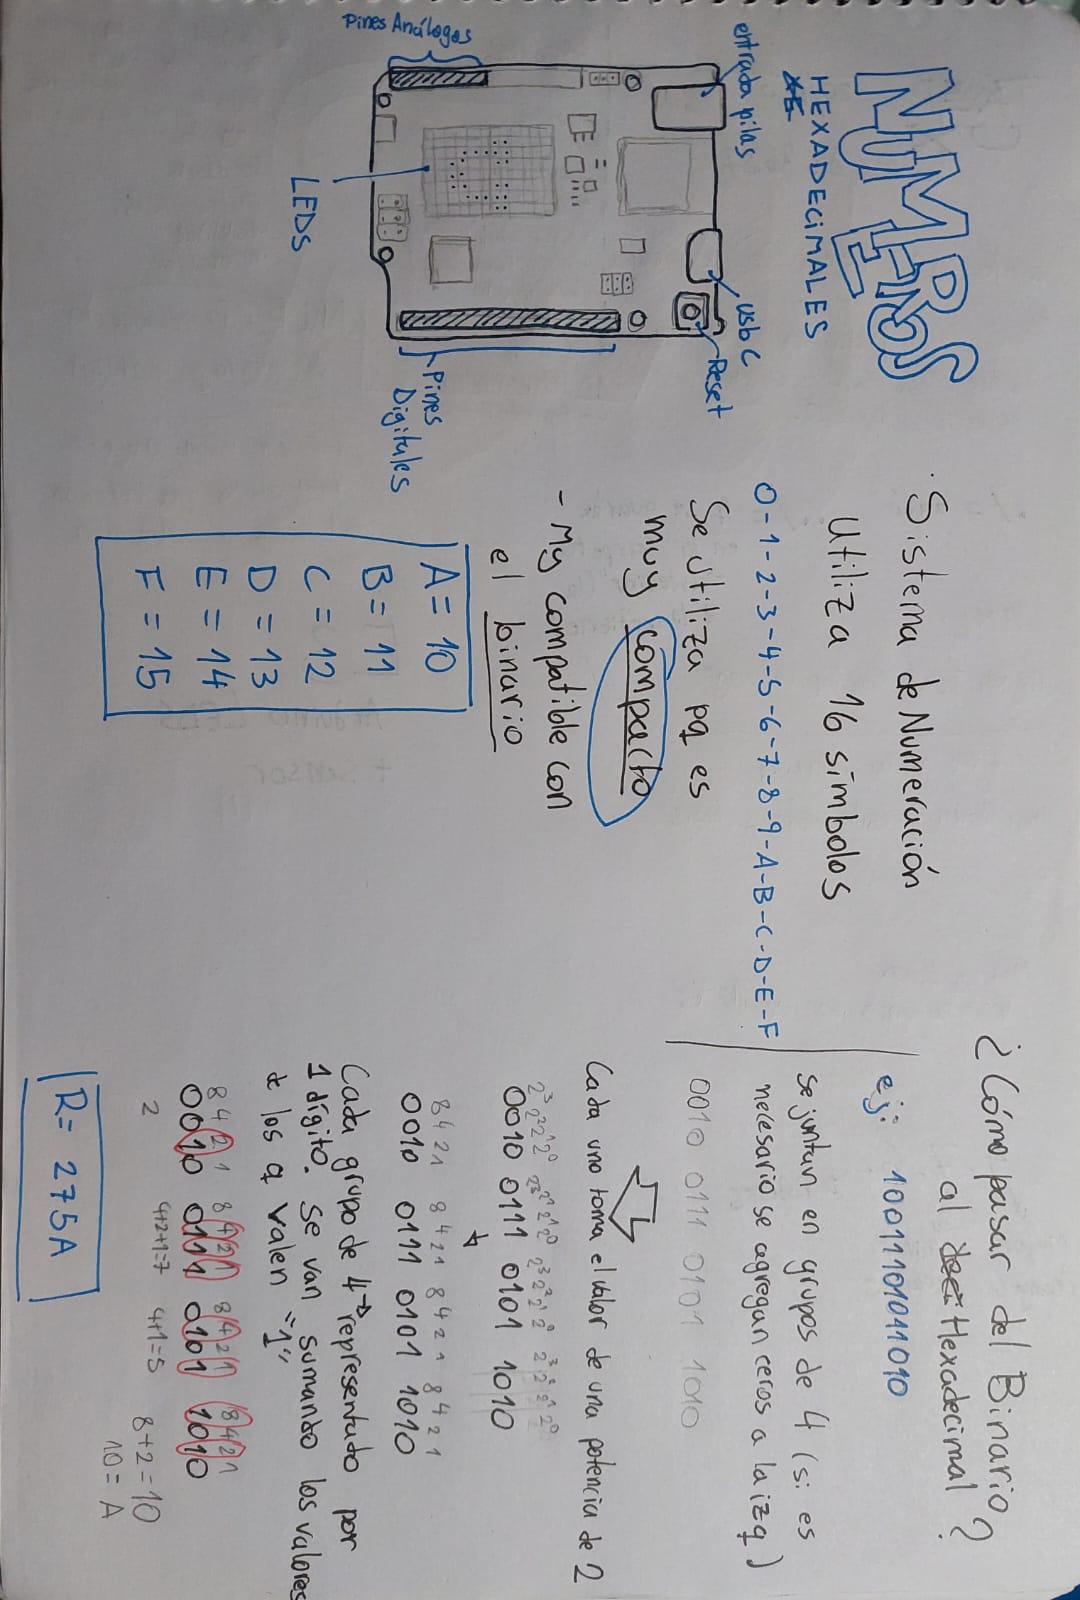 NUMEROS
HEXADECIMALES
entrada pilas
usb C
Reset
Pines Análogos
Pines
Digitales
LEDS
Sistema de Numeración
Utiliza 16 símbolos
0-1-2-3-4-5-6-7-8-9-A-B-C-D-E-F
Se utiliza pq es
muy compacto
- My compatible con
el binario
A = 10
B = 11
C = 12
D = 13
E = 14
F = 15
¿Cómo pasar del Binario
al Hexadecimal?
ej: 10011101011010
se juntan en grupos de 4 (si es
necesario se agregan ceros a la izq)
0010 0111 0101 1010
Cada uno toma el valor de una potencia de 2
2³ 2² 2¹ 2⁰ 2³ 2² 2¹ 2⁰ 2³ 2² 2¹ 2⁰ 2³ 2² 2¹ 2⁰
0010 0111 0101 1010
8 4 2 1 8 4 2 1 8 4 2 1 8 4 2 1
0010 0111 0101 1010
Cada grupo de 4 → representado por
1 dígito. se van sumando los valores
de los q valen "1"
8 4 2 1 8 4 2 1 8 4 2 1 8 4 2 1
0010 0111 0101 1010
2 4+2+1=7 4+1=5 8+2=10
10 = A
R= 275A